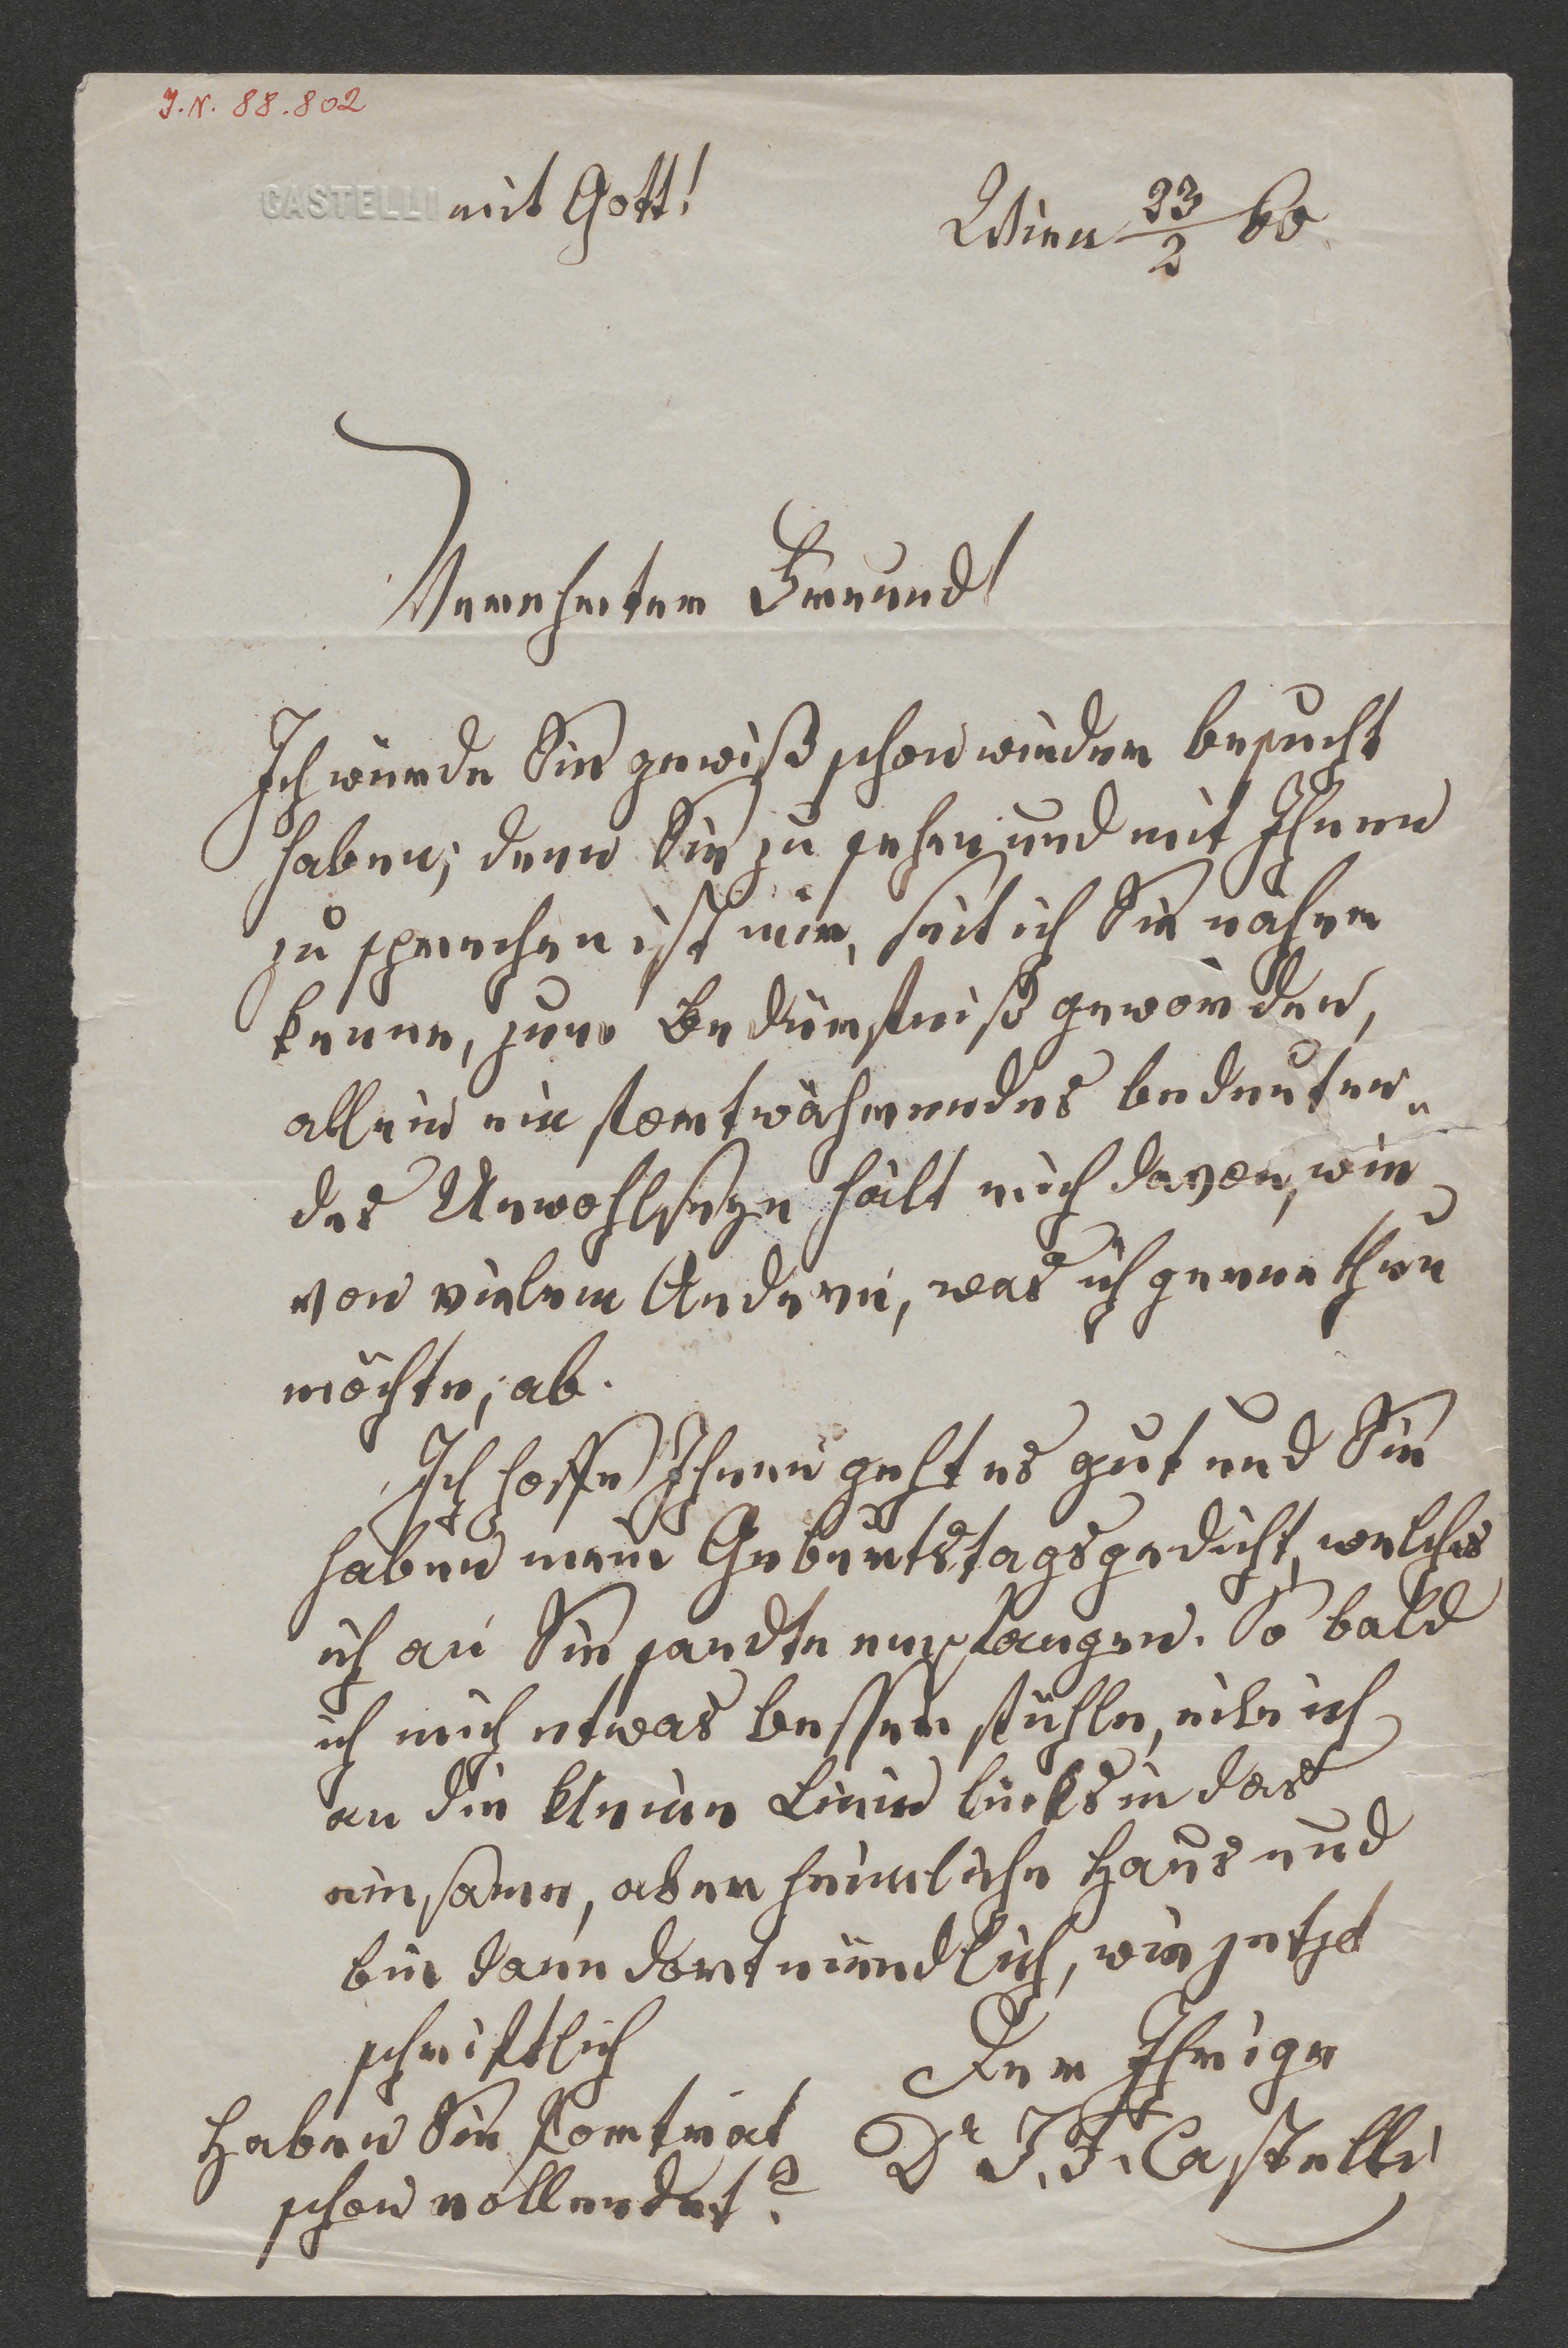 I. N. 88.802
CASTELLI mit Gott!
Wien 23/2 60
Verehrter Freund!
Ich würde Sie gewiß schon wieder besucht
haben; denn Sie zu sehen und mit Ihnen
zu sprechen ist mir, seit ich Sie näher
kenne, zum Bedürfniß geworden,
allein ein fortwährendes bedeuten-
des Unwohlseyn hält mich davon, wie
von vielem Andern, was ich gerne thun
möchte, ab.
Ich hoffe Ihnen geht es gut und Sie
haben mein Geburtstagsgedicht, welches
ich an Sie sandte empfangen. So bald
ich mich etwas besser fühle, eile ich
an die kleine Linie links in das
einsame, aber heimliche Haus und
bin dann dort mündlich, wie jetzt
schriftlich
Der Ihrige
Dr. J. F. Castelli
Haben Sie Portrait
schon vollendet?